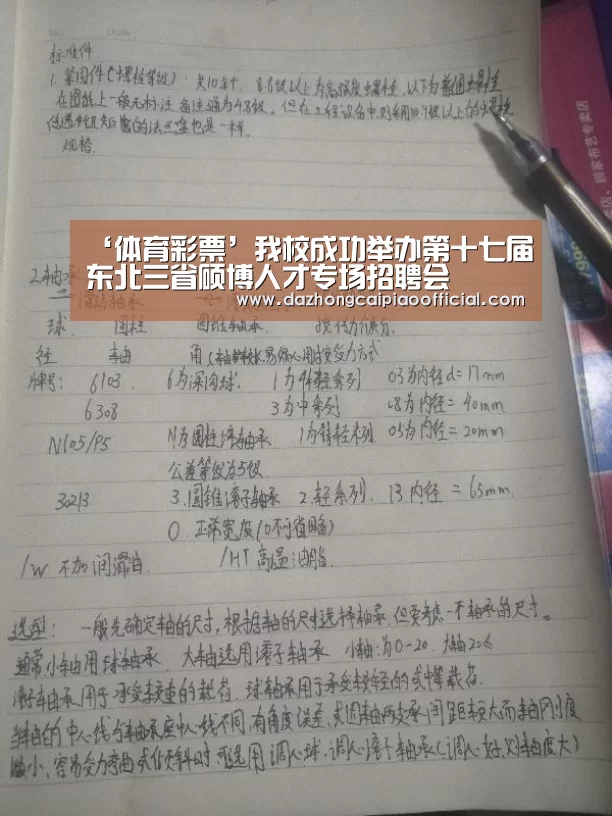 No
Date
标准件
1. 紧固件(螺栓等级): 共10多个, 8.8级以上为高强度螺栓, 以下为普通螺栓
在图纸上一般无标注, 备注通为4.8级。但在工程设备中, 则采用10.9级以上的
也是一样。
规格.
‘体育彩票’我校成功举办第十七届
东北三省硕博人才专场招聘会
www.dazhongcaipiaoofficial.com
2.轴承
滚动轴承
球 圆柱 圆锥轴承. 按
径 轴 角
牌号: 6103. 6为深沟球. 1为特轻系列 03为内径d=17mm
6308 3为中系列 08为内径=40mm
N105/P5 N为圆柱滚子轴承 1为特轻系列 05为内径=20mm
公差等级为5级.
30213 3.圆锥滚子轴承 2.轻系列. 13内径=65mm.
0.正常宽度(0不可省略)
/W 不加润滑油. /HT 高温油脂.
选型: 一般先确定轴的尺寸, 根据轴的尺寸选择轴承. 但要考虑一下轴承的尺寸。
通常小轴用球轴承. 大轴选用滚子轴承 小轴:为0-20. 大轴20≤
滚子轴承用于承受较重的载荷. 球轴承用于承受较轻的或中等载荷.
当轴的中心线与轴承座中心线不同, 有角度误差, 或因轴两支承间距较大而轴刚度
小、容易受力弯曲或倾斜时. 可选用调心球.调心滚子轴承(调心好,